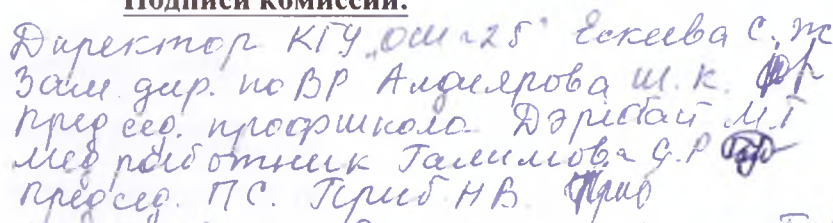 Подписи комиссии:
Директор КГУ „ОШ №25" Ескеева С. Ж
Зам. дир. по ВР Алдиярова Ш. К.
Пред сед. профшкола Дәрібай М.Г
Мед работник Галимова Д.Р
Председ. ПС. Приб НВ